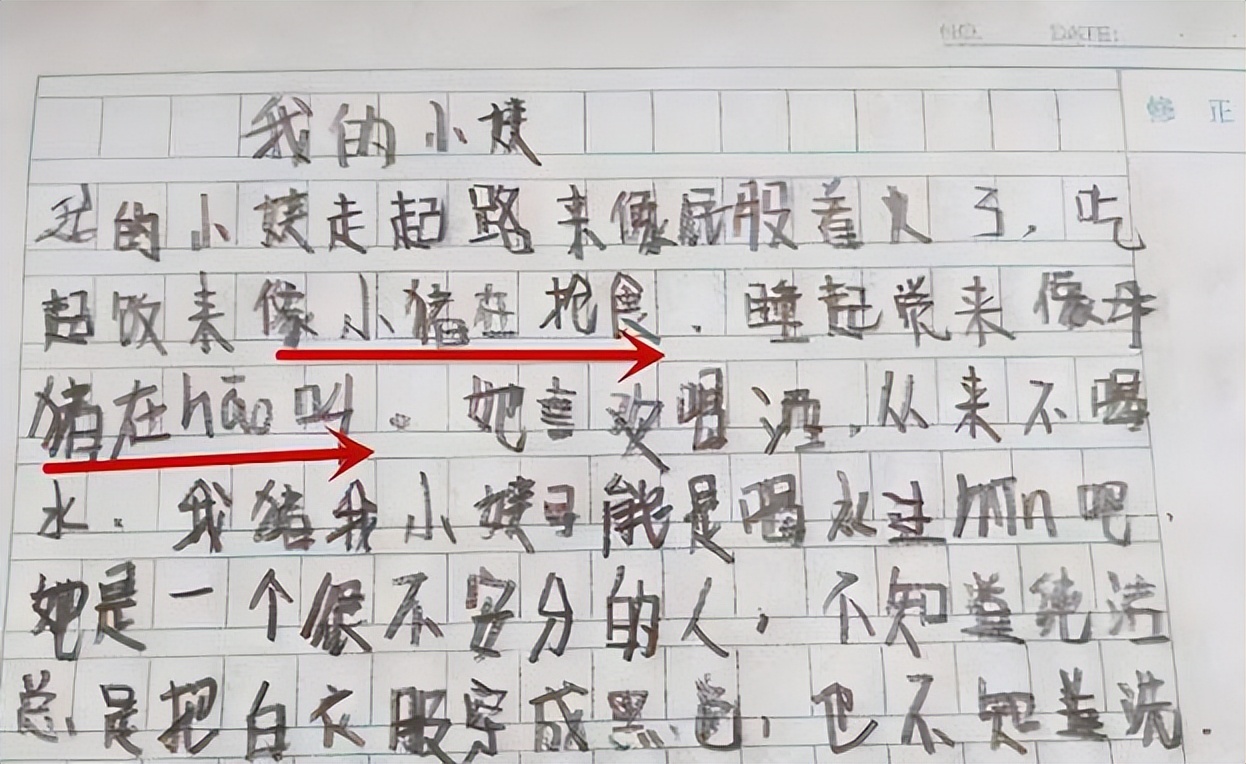 NO. DATE:
修正
我的小姨
我的小姨走起路来像屁股着火了,吃
起饭来像小猪在抢食.睡起觉来像母
猪在hāo叫。她喜欢喝酒,从来不喝
水.我猜我小姨可能是喝水过mǐn吧,
她是一个很不安分的人,不知道纯洁
总是把白衣服穿成黑色,也不知道洗.